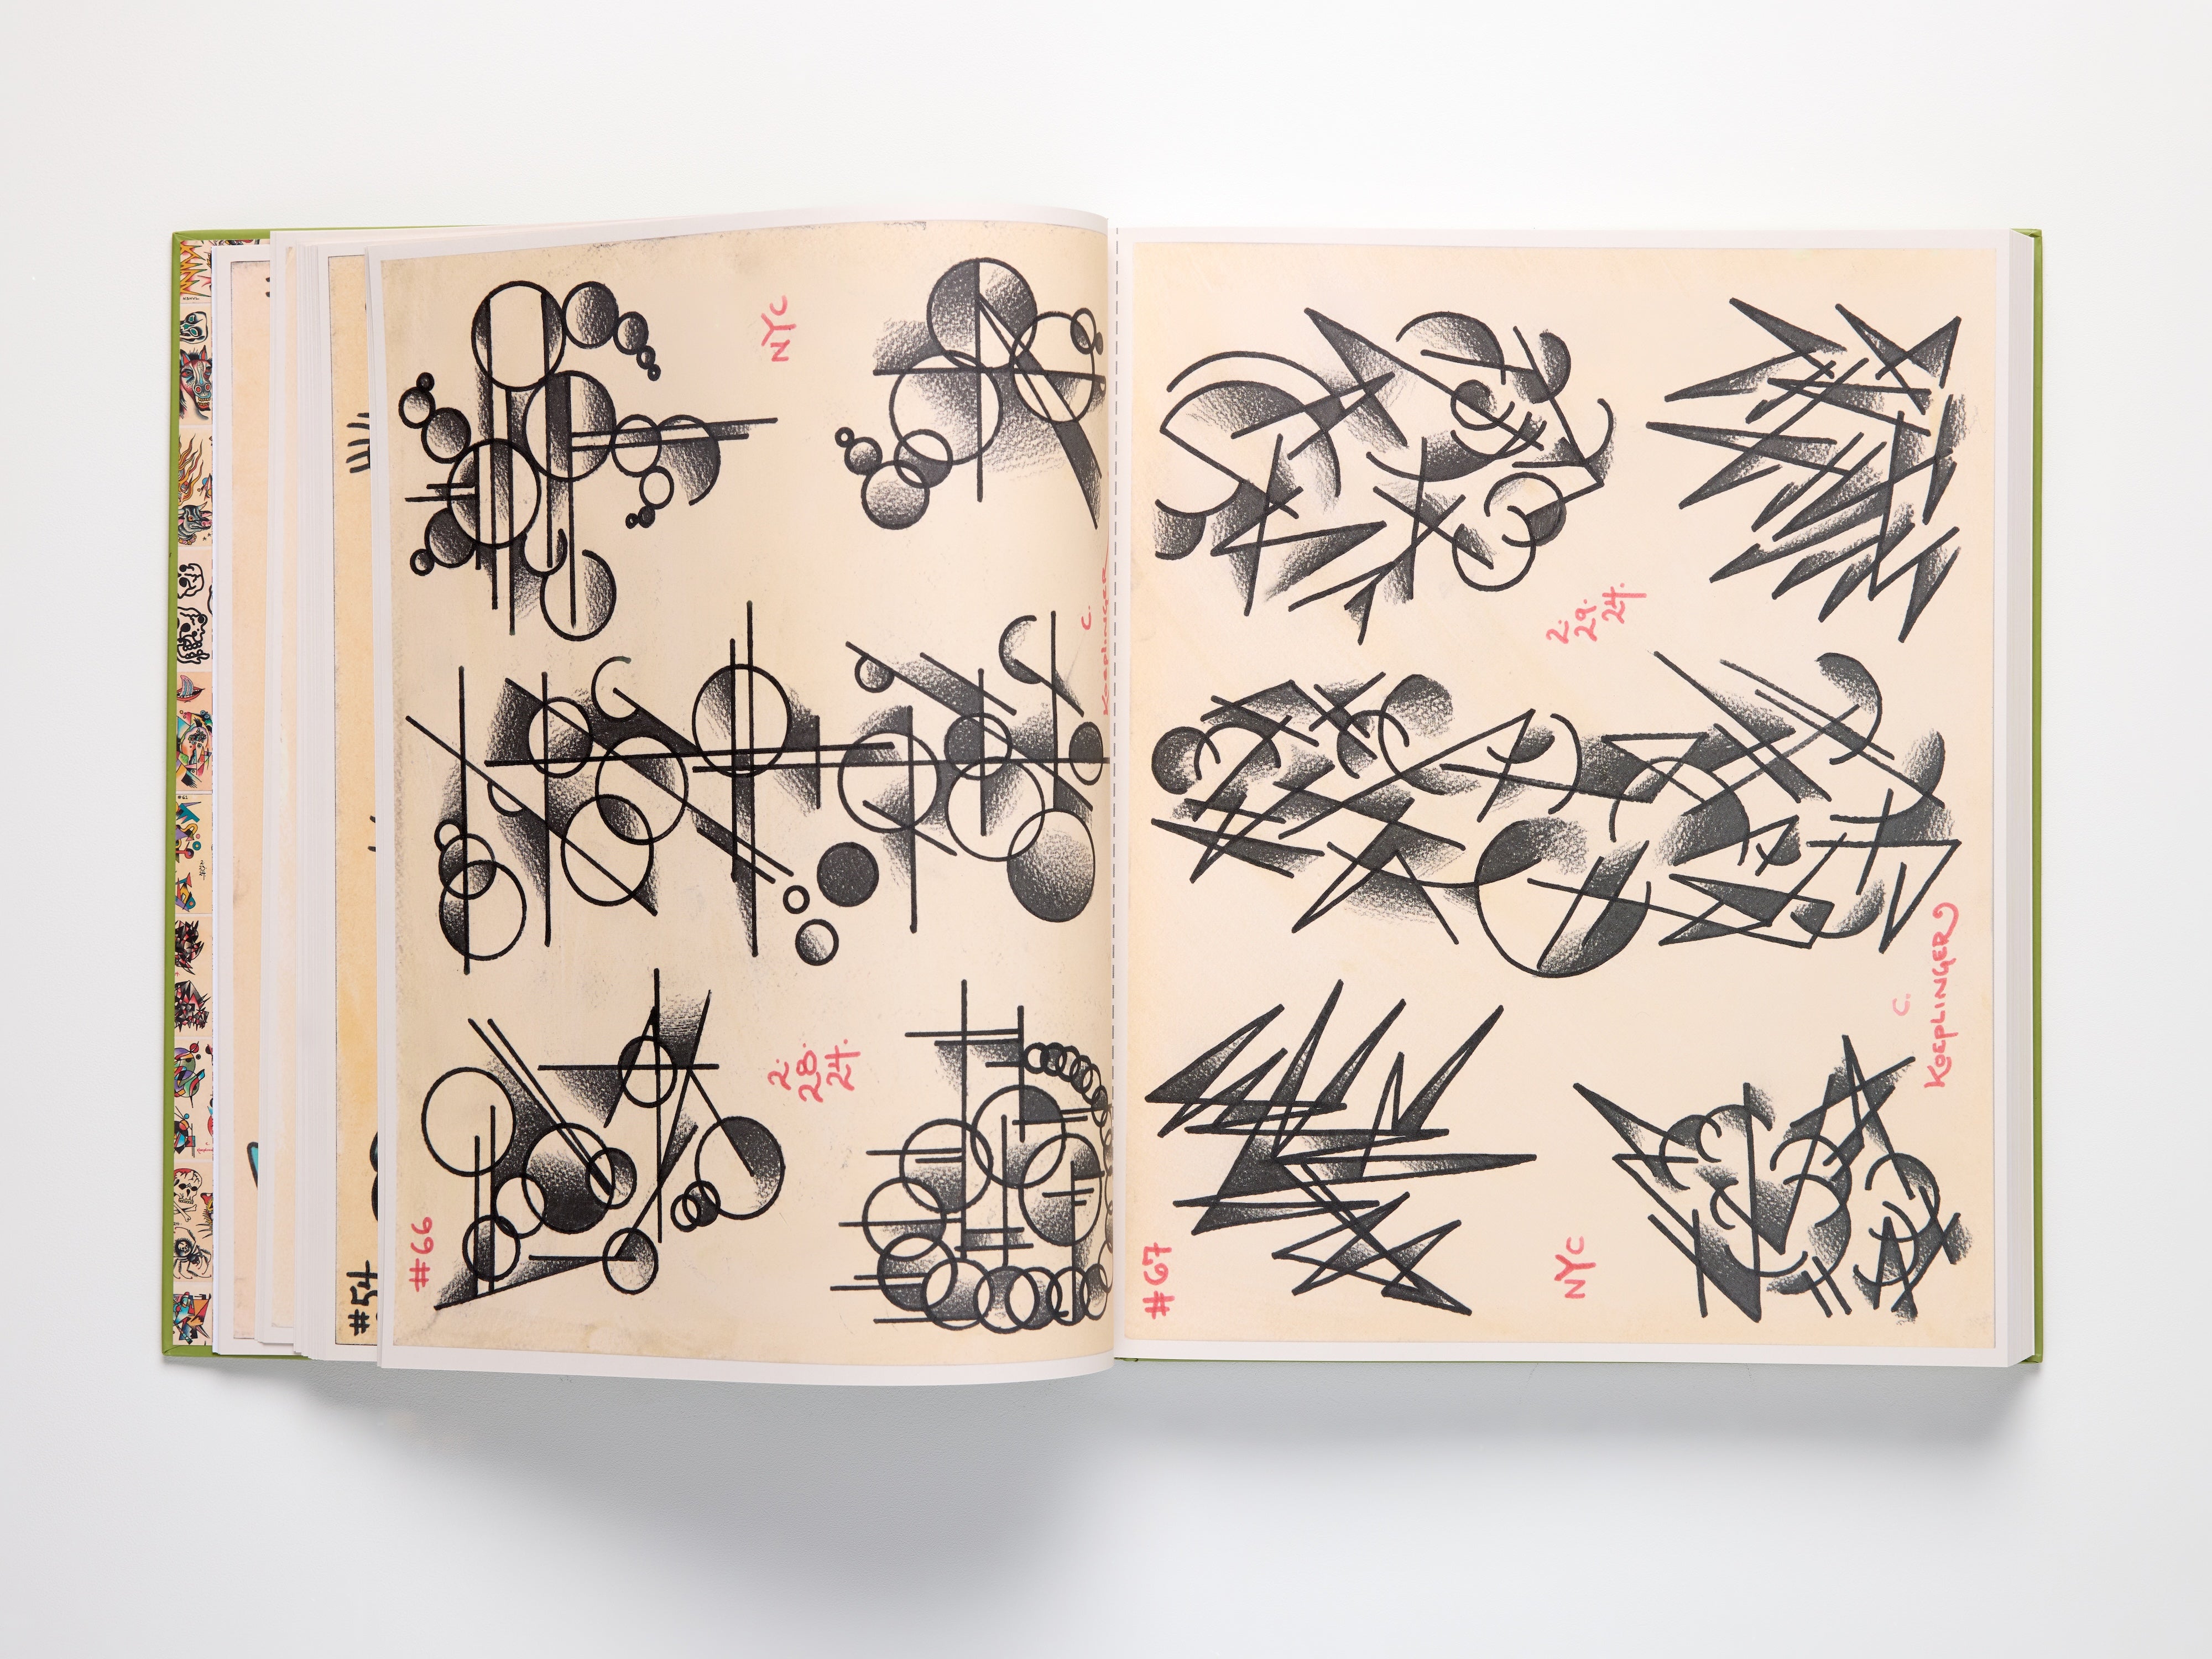 #54
#66
NYC
2.
28.
24.
C.
KOEPLINGER
#67
NYC
2.
29.
24.
C.
KOEPLINGER